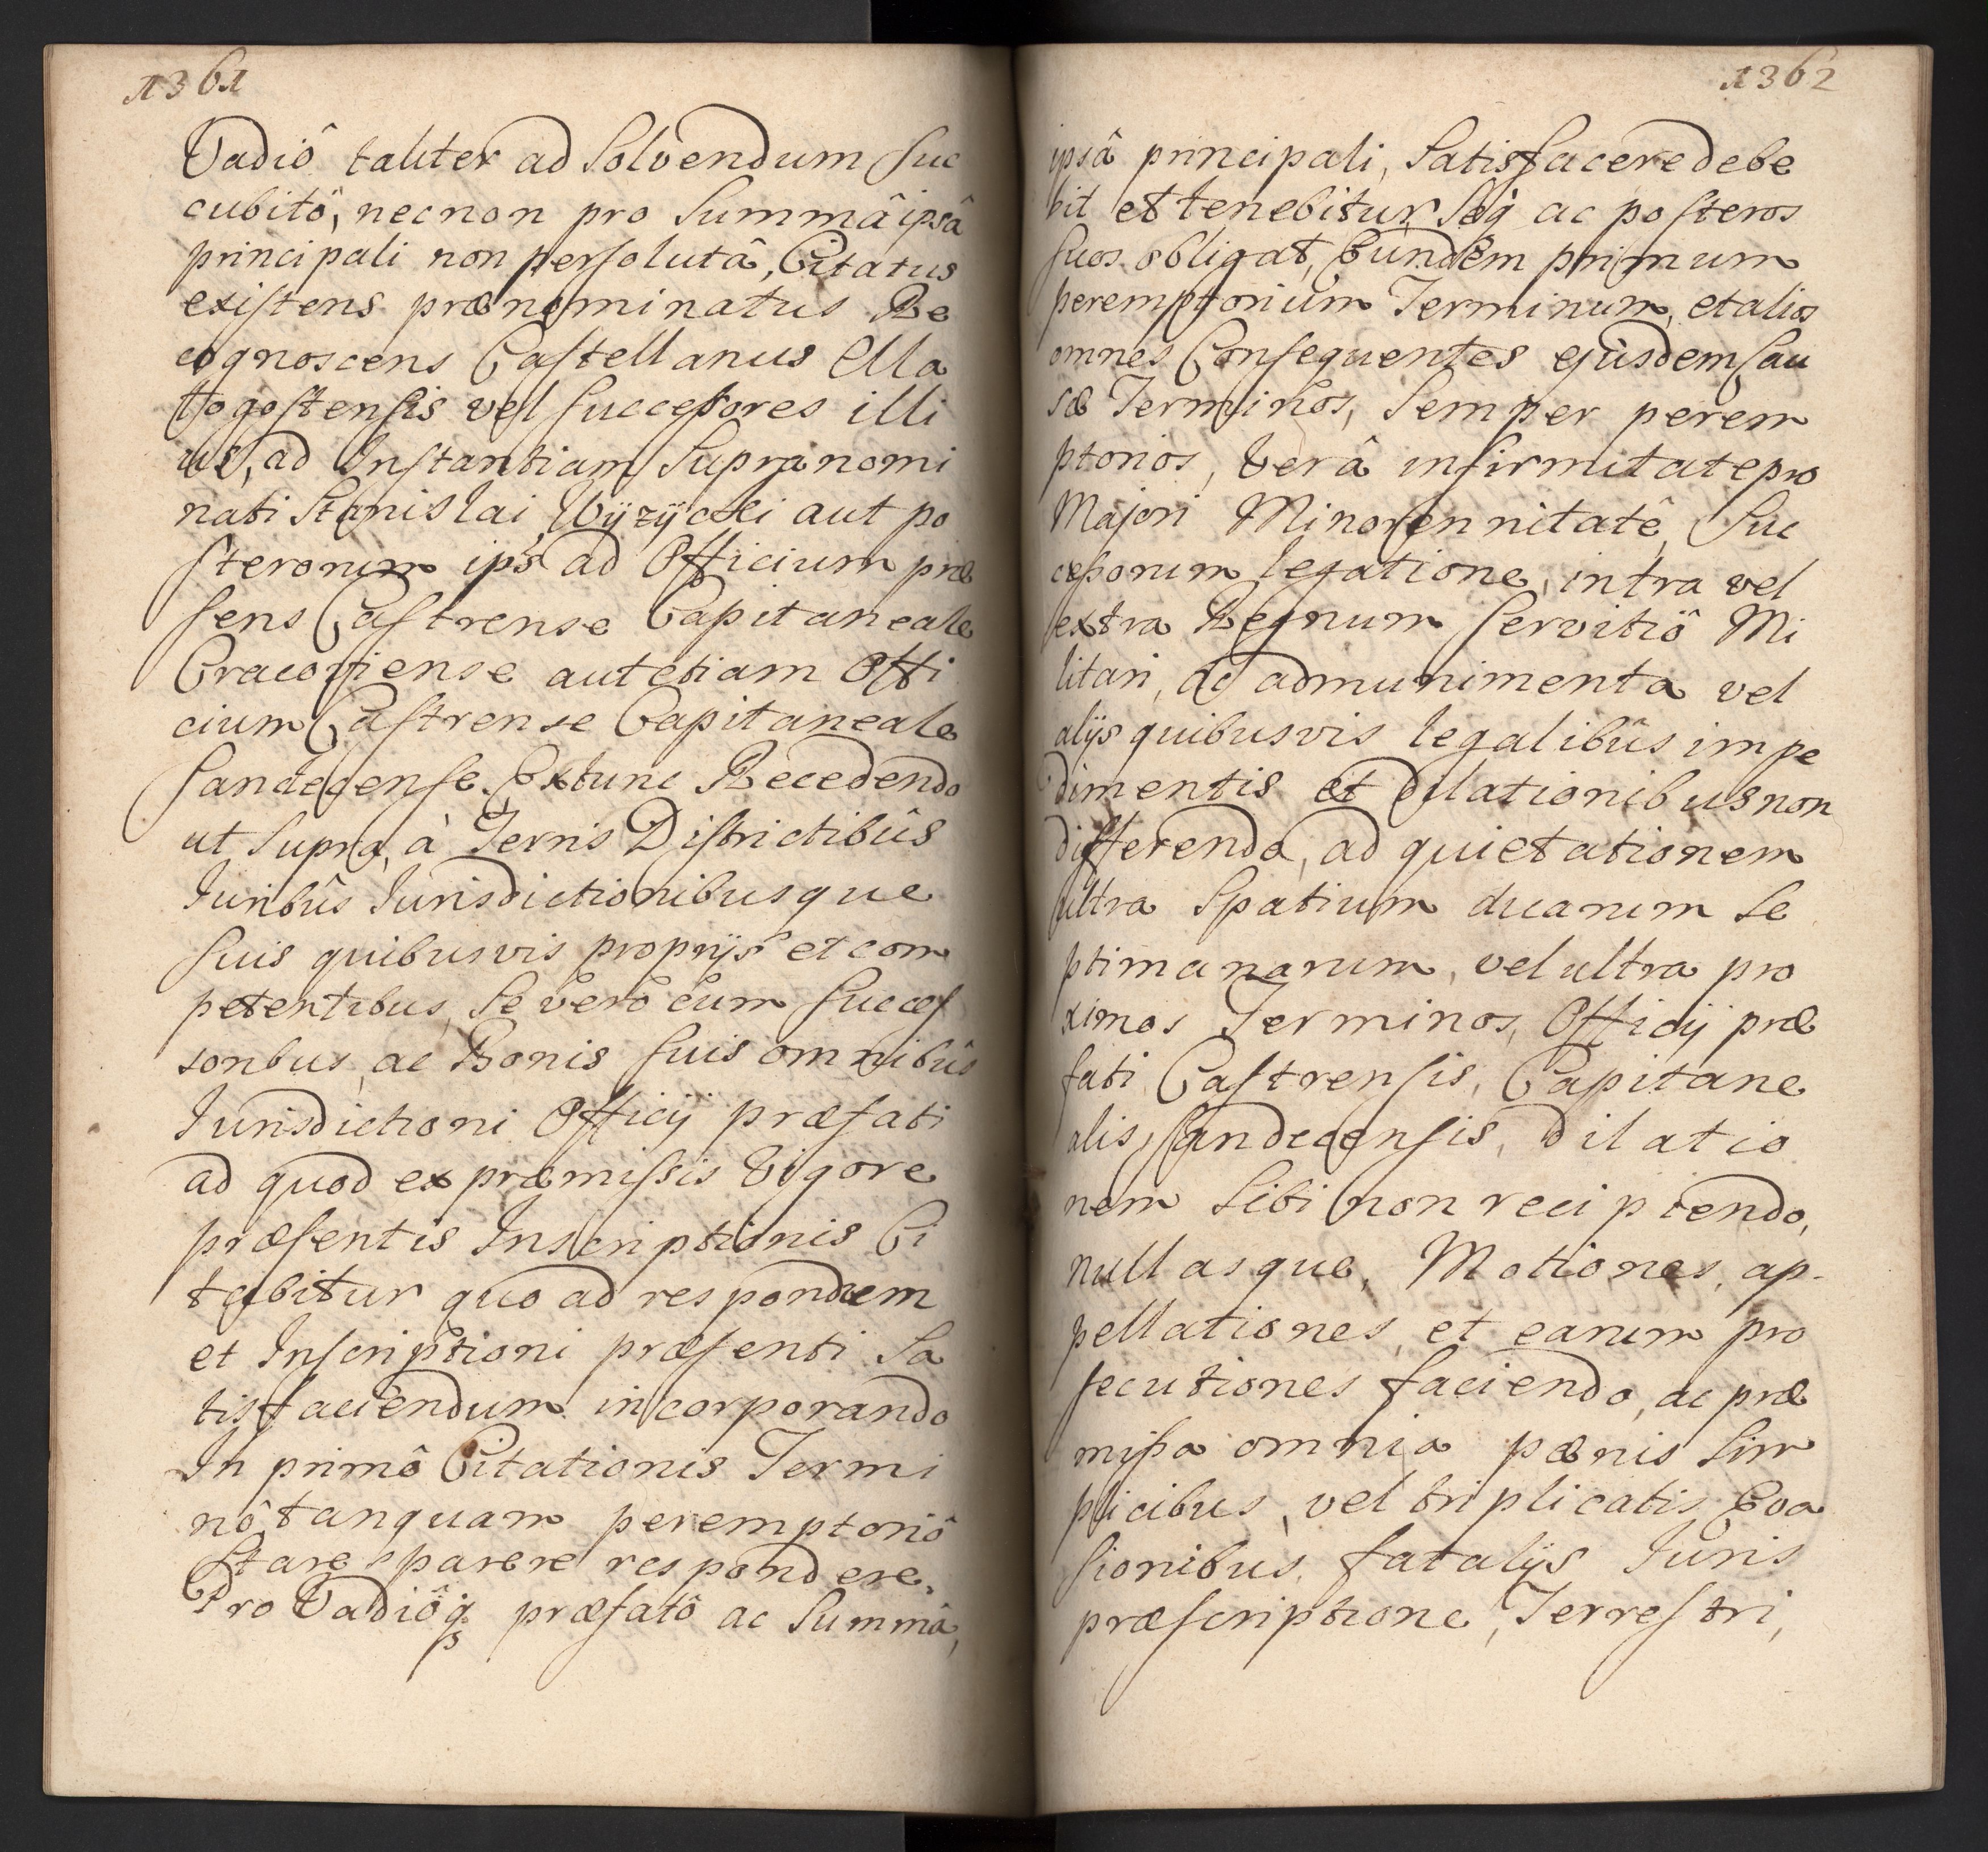 1361
Vadiô taliter ad Solvendum Suc
cubitô, necnon pro Summâ ipsâ
principali non persolutâ, Citatus
existens prænominatus Re
cognoscens Castellanus Ma
logostensis vel Successores illi
us, ad Instantiam Supranomi
nati Stanislai Wÿzÿcki aut po
sterorum ips ad Officium præ
sens Castrense Capitaneale
Cracoviense aut etiam Offi
cium Castrense Capitaneale
Sandecense. Extunc Recedendo
ut Supra, à Terris Districtibûs
Iuribûs Iurisdictionibusque
suis quibusvis proprijs et com
petentibus, Se verò cum Succes
soribus, ac Bonis suis omnibûs
Iurisdictioni Officij præfati
ad quod ex præmissis Vigore
præsentis Inscriptionis Ci
tabitur quo ad respondem
et Inscriptioni præsenti Sa
tisfaciendum incorporando
In primô Citationis Termi
nô tanquam peremptoriô
Stare parere respondere.
Pro Vadiôq præfatô ac Summâ,
1362
ipsâ principali, Satisfacere debe
bit et tenebitur Seq ac posteros
suos obligat, Eundem primum
peremptorium Terminum, et alios
omnes Consequentes ejusdem Cau
sæ Terminos, Semper perem
ptorios, Verâ infirmitate pro
Majori Minorennitatê, Suc
cessorum legatione, intra vel
extra Regnum Servitiô Mi
litari, ac admunimenta vel
alijs quibusvis legalibûs impe
dimentis et dilationibus non
differendo, ad quietationem
ultra Spatium duarum Se
ptimanarum, vel ultra pro
ximos Terminos, Officij præ
fati Castrensis, Capitane
alis, Sandecensis, dilatio
nem Sibi non recipiendo,
nullasque, Motiones, ap-
pellationes, et earum pro
secutiones faciendo, ac præ
missa omnia pænis Sim
plicibus, vel triplicatis, Eva
sionibus, fatalijs Iuris
præscriptione, Terrestri,